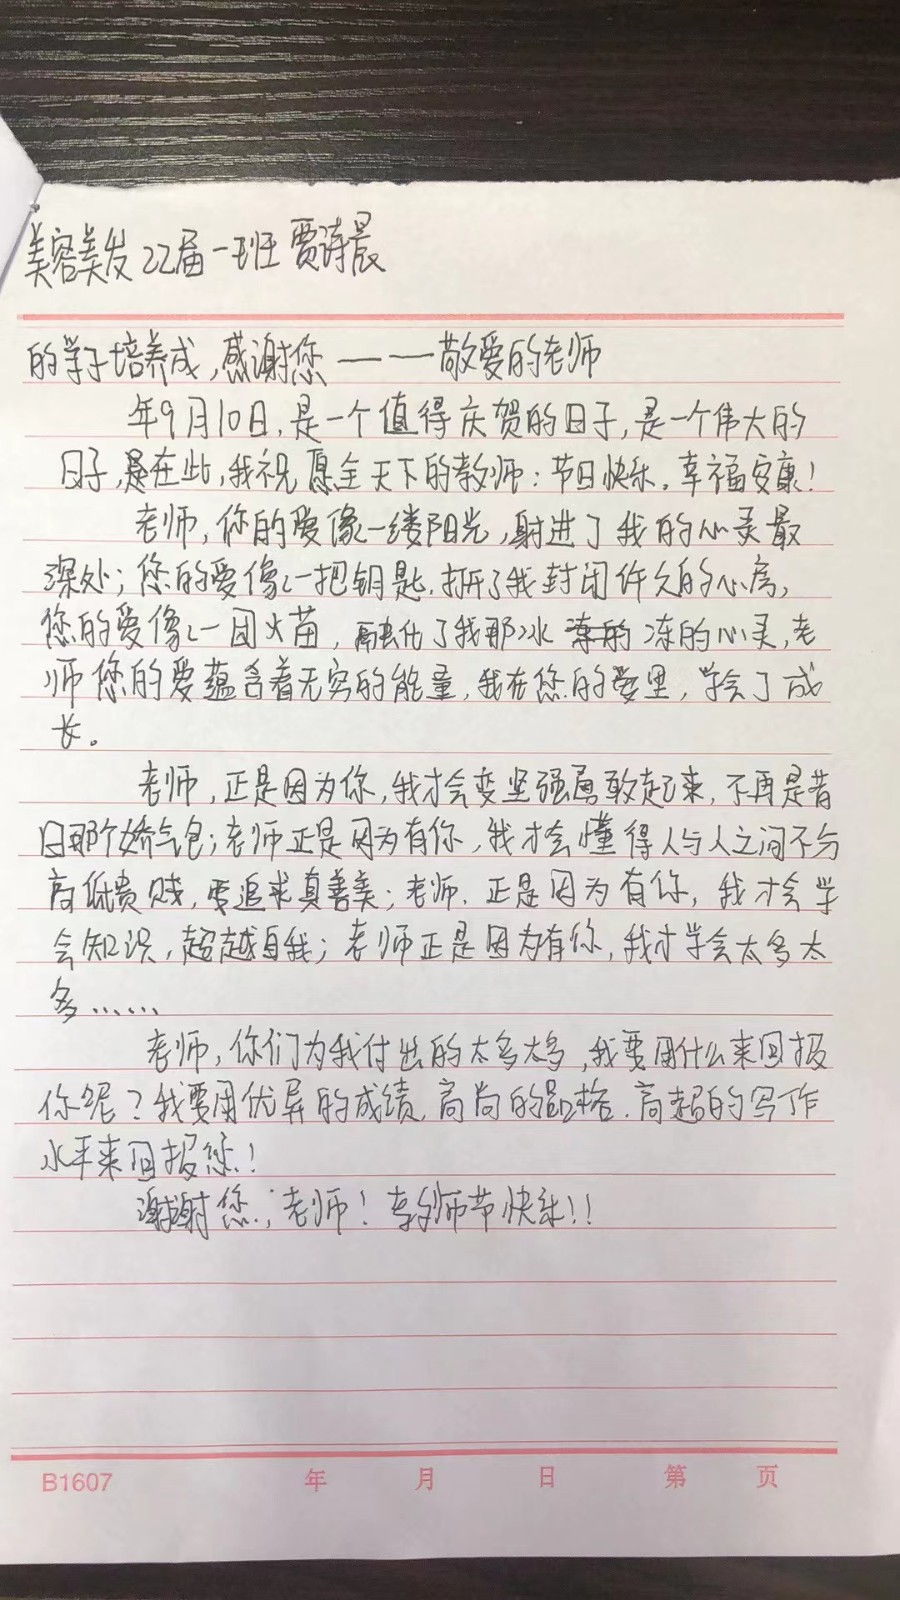 美容美发22届一班 贾诗晨
的学子培养成,感谢您——敬爱的老师
年9月10日,是一个值得庆贺的日子,是一个伟大的
日子,是在此,我祝愿全天下的教师:节日快乐,幸福安康!
老师,你的爱像一缕阳光,射进了我的心灵最
深处;您的爱像一把钥匙,打开了我封闭许久的心房,
您的爱像一团火苗,融化了我那冰冻的心灵,老
师您的爱蕴含着无穷的能量,我在您的爱里,学会了成
长。
老师,正是因为你,我才会变坚强勇敢起来,不再是昔
日那个娇气包;老师正是因为有你,我才会懂得人与人之间不分
高低贵贱,要追求真善美;老师.正是因为有你,我才会学
会知识,超越自我;老师正是因为有你,我才学会太多太
多……
老师,你们为我付出的太多太多,我要用什么来回报
你呢?我要用优异的成绩,高尚的品格.高超的写作
水平来回报您!
谢谢您,老师!教师节快乐!!
B1607 年 月 日 第 页